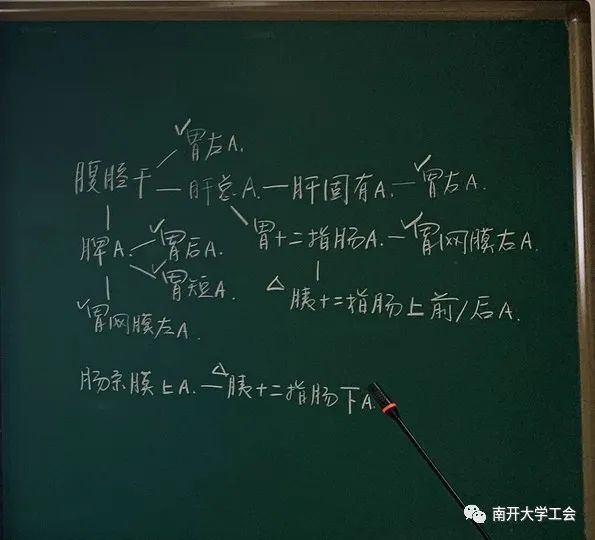 ✓胃左A.
腹腔干 — 肝总A. — 肝固有A. — ✓胃右A.
脾A. ✓胃后A. 胃十二指肠A. — ✓胃网膜右A.
✓胃短A. △胰十二指肠上前/后A.
✓胃网膜左A.
肠系膜上A. — △胰十二指肠下A.
南开大学工会